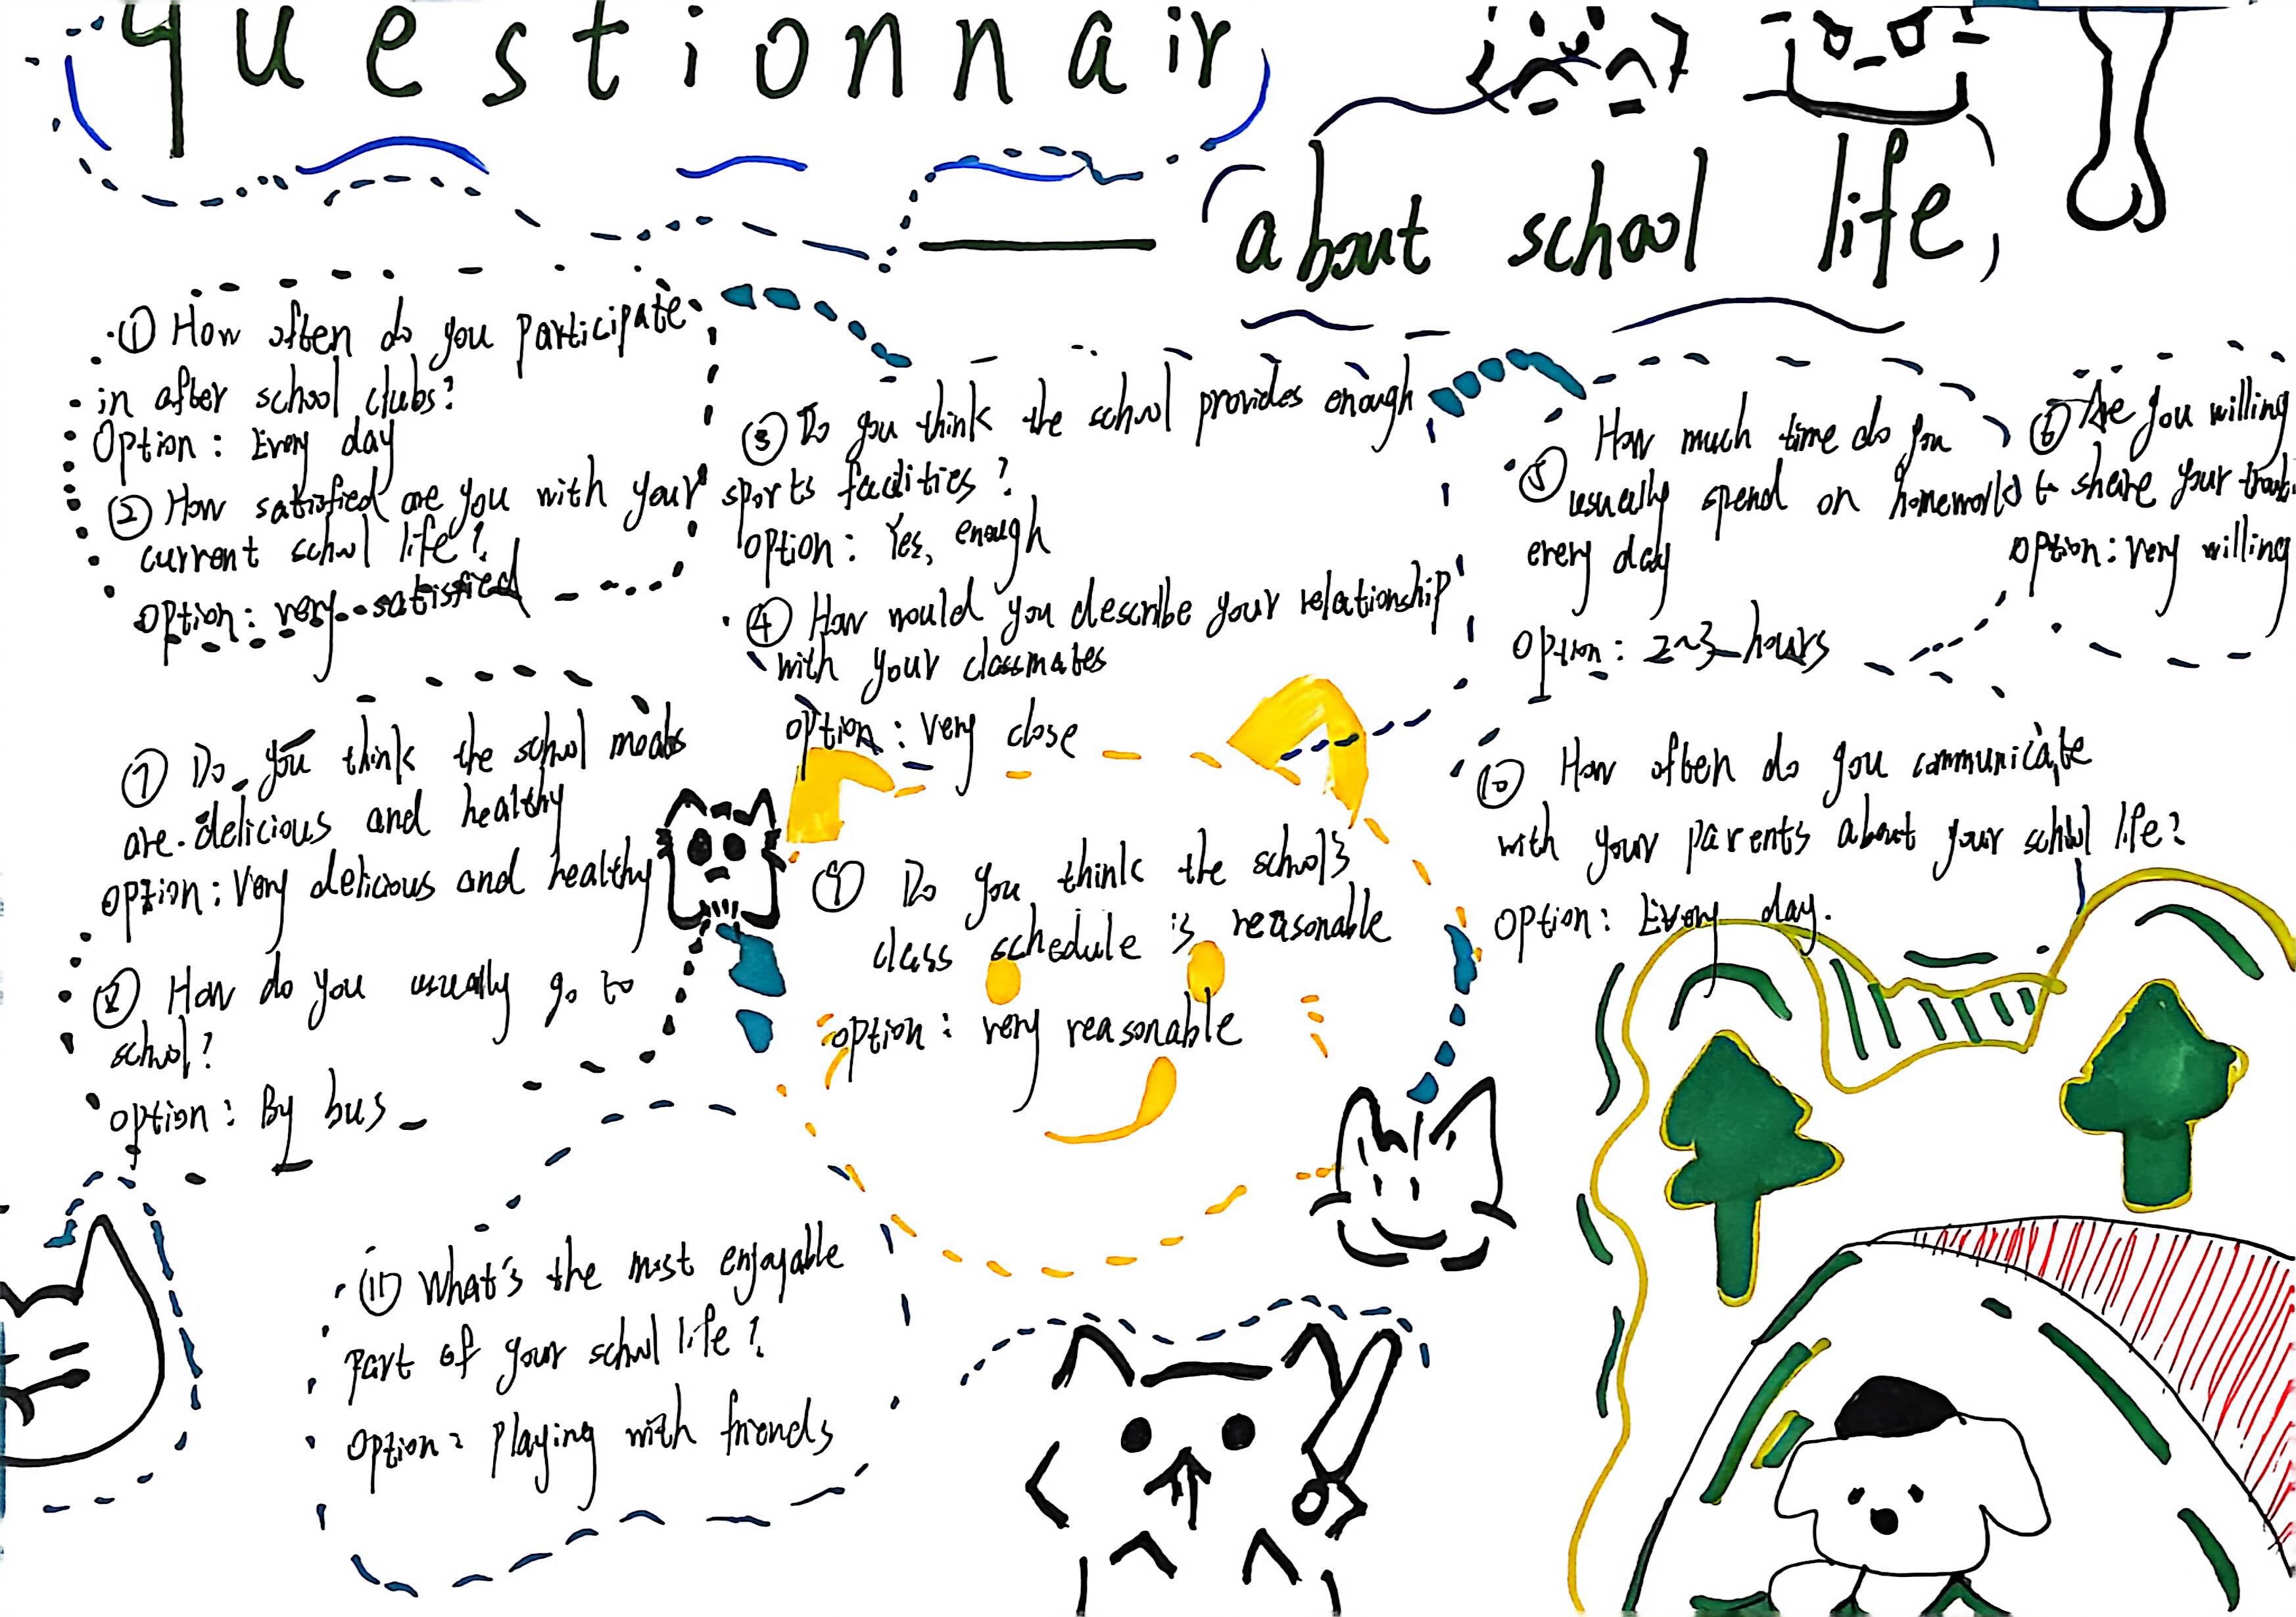 questionnair
about school life
① How often do you participate
in after school clubs?
Option: Every day
② How satisfied are you with your
current school life?
Option: very satisfied
③ Do you think the school provides enough
sports facilities?
option: Yes, enough
④ How would you describe your relationship
with your classmates
option: very close
⑤ How much time do you
usually spend on homework
every day
Option: 2~3 hours
⑥ Are you willing
to share your
option: very willing
⑦ Do you think the school meals
are delicious and healthy
option: Very delicious and healthy
⑧ How do you usually go to
school?
option: By bus
⑨ Do you think the school's
class schedule is reasonable
option: very reasonable
⑩ How often do you communicate
with your parents about your school life?
option: Every day.
⑪ What's the most enjoyable
part of your school life?
option: playing with friends